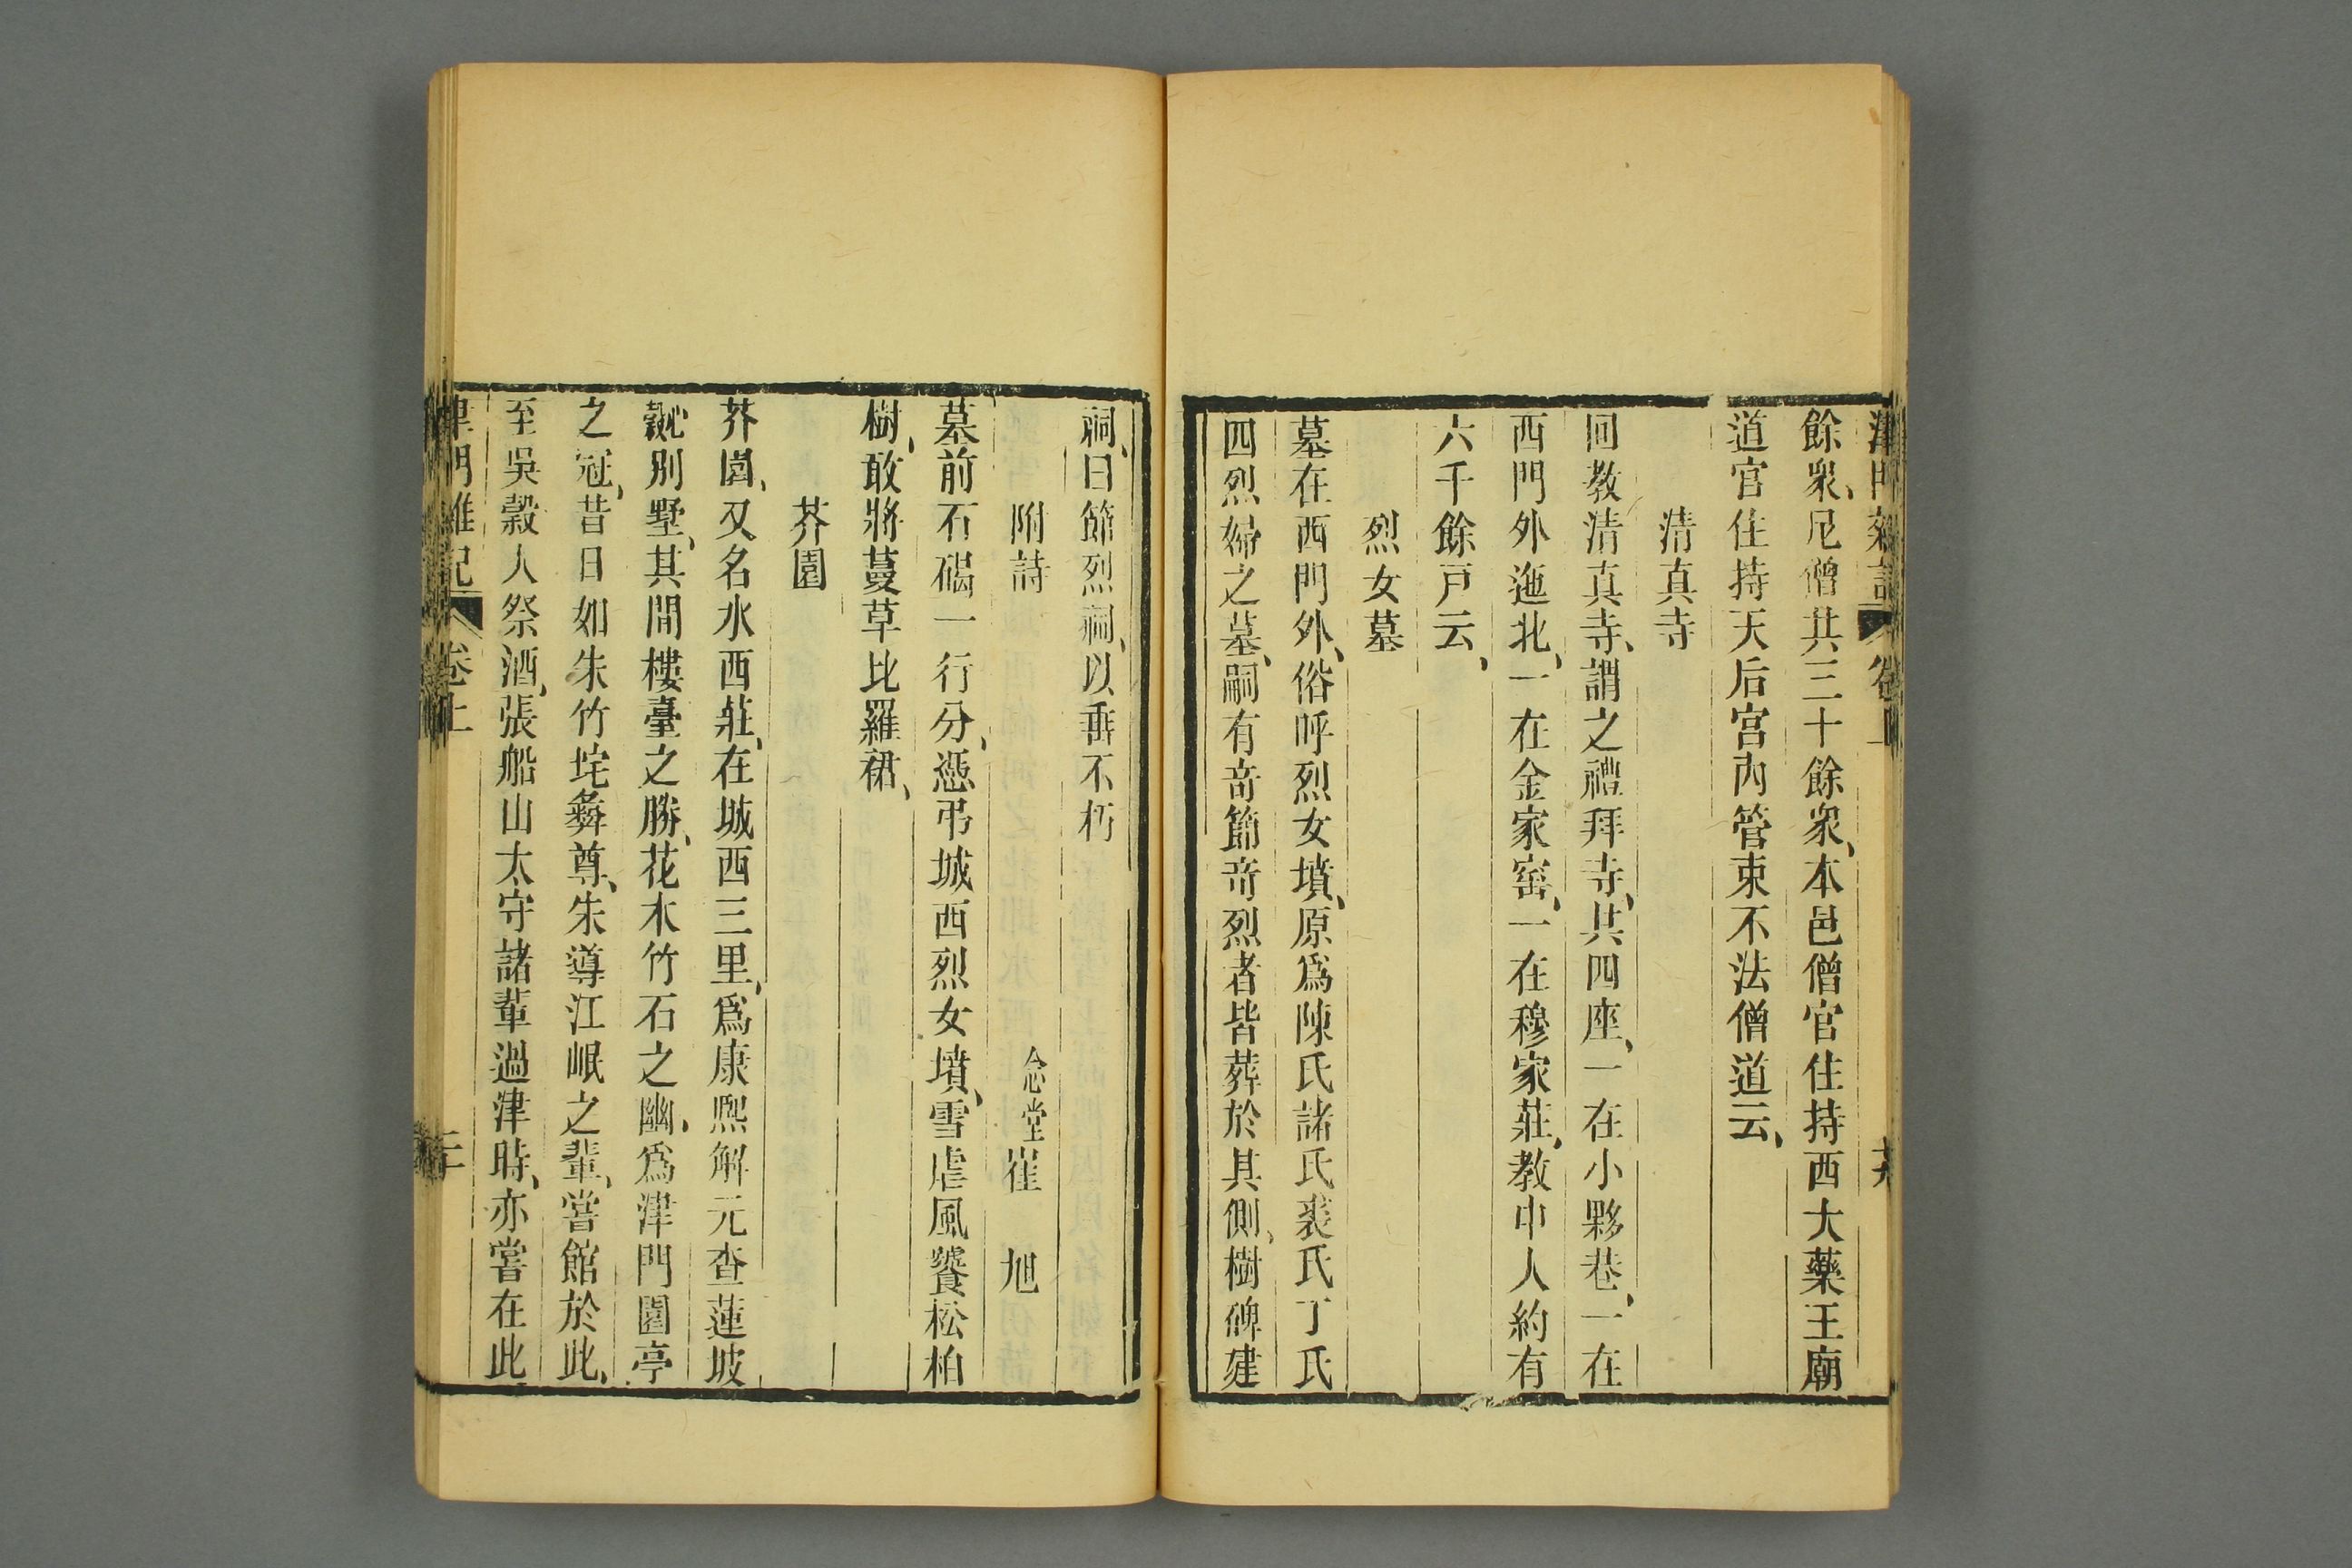 津門雜記 卷上
餘衆、尼僧共三十餘衆、本邑僧官住持西大藥王廟
道官住持天后宮內管束不法僧道云、
清真寺
回教清真寺、謂之禮拜寺、共四座、一在小夥巷、一在
西門外迤北、一在金家窰、一在穆家莊、教中人約有
六千餘戸云、
烈女墓
墓在西門外、俗呼烈女墳、原爲陳氏諸氏裘氏丁氏
四烈婦之墓、嗣有竒節竒烈者皆葬於其側、樹碑建
祠、曰節烈祠、以垂不朽
附詩 念堂崔 旭
墓前石碣一行分、憑弔城西烈女墳、雪虐風饕松柏
樹、敢將蔓草比羅裙、
芥園
芥園、又名水西莊、在城西三里、爲康熙解元查蓮坡
別墅、其間樓臺之勝、花木竹石之幽、爲津門園亭
之冠、昔日如朱竹垞彝尊、朱導江岷之輩、嘗館於此、
至吳穀人祭酒、張船山太守諸輩過津時、亦嘗在此
津門雜記 卷上